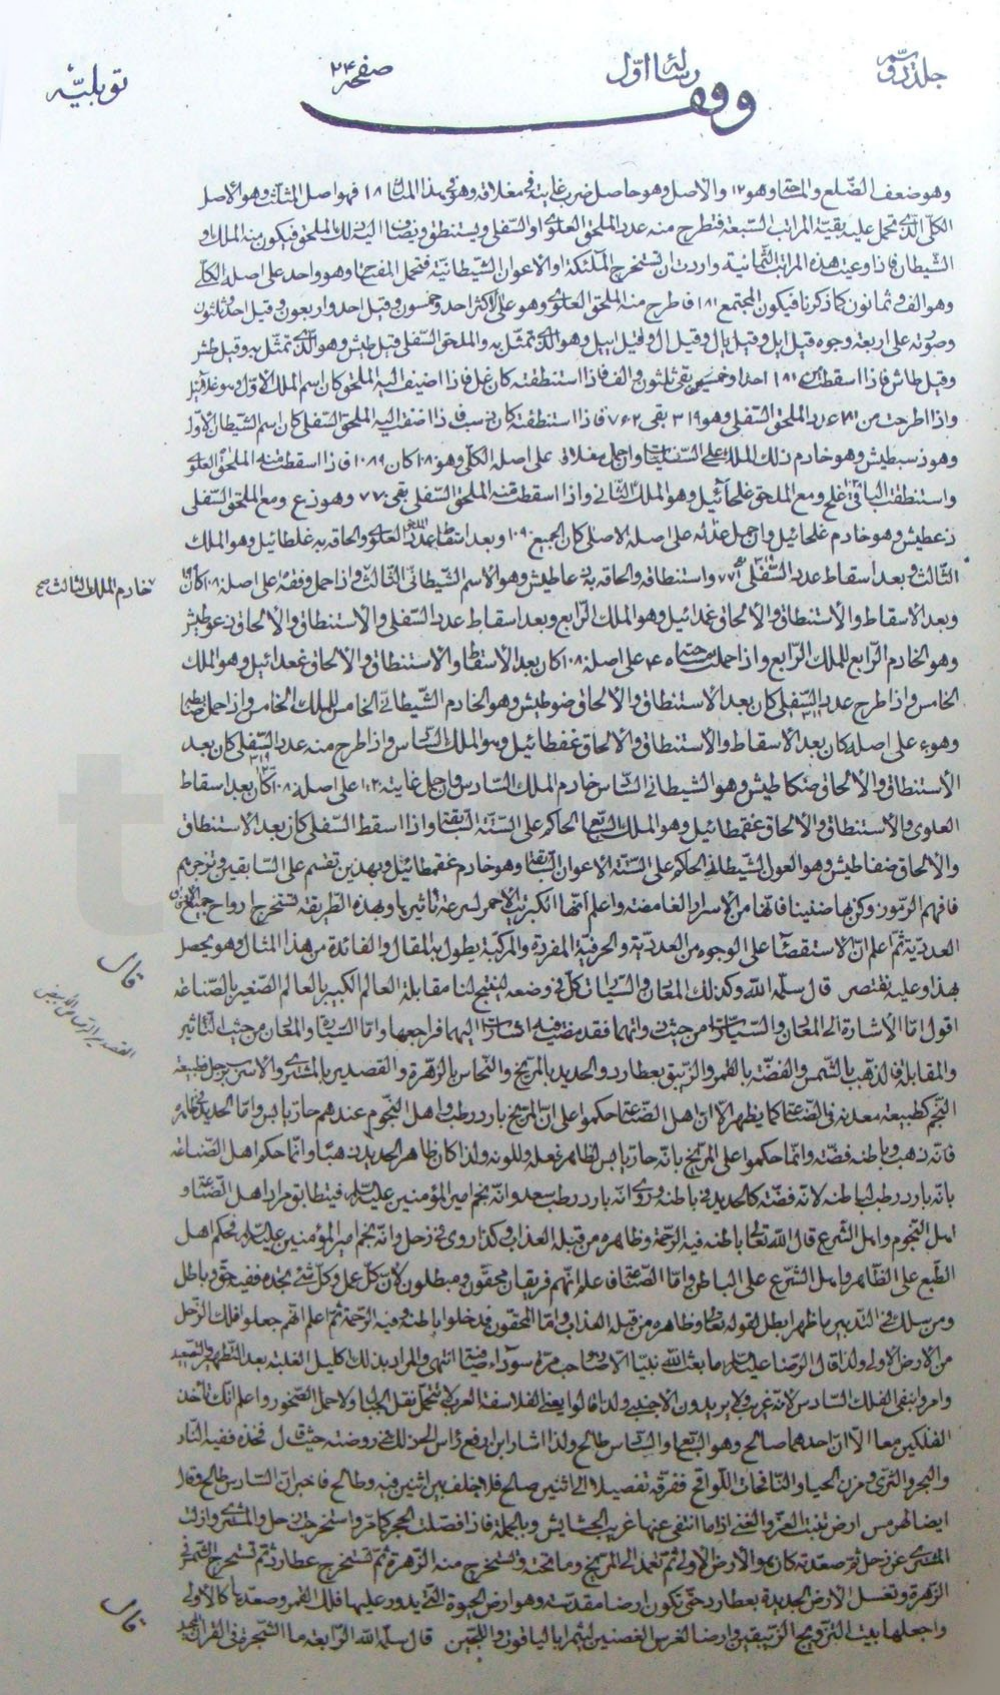 جلد دوّم رسالهٔ اوّل صفحه ۲۴ توبلیّه
وقف
وهو ضعف الضّلع والمحتاو هو ۱۲ والاصل وهو حاصل ضرب غايته في مغلاقه وهو في هذا المثال ۱۰۸ فهو اصل المثلث وهو الاصل
الكلّي الّذي تحمل عليه بقيّة المراتب السّبعة فتطرح منه عدد الملحق العلوي او السّفلي ويستنطق ويضاف اليه ذلك الملحق فيكون منه الملك او
الشيطان فاذا وعيت هذه المراتب الثّمانية واردت ان تستخرج الملئكة او الاعوان الشّيطانيّة فتحمل المفتاح وهو واحد على اصله الكلّي
وهو الف وثمانون كما ذكرنا فيكون المجتمع ۱۰۸۱ فاطرح منه الملحق العلوي وهو على الاكثر احد وخمسون وقيل احد واربعون وقيل احد وثلثون
وصورته على اربعة وجوه قيل ايل وقيل يال وقيل ال وقيل ابيل وهو الّذي تمثّل به والملحق السّفلي قيل طيش وهو الّذي تمثّل به وقيل طش
وقيل طاش فاذا اسقطت من ۱۰۸۱ احدا وخمسين بقى ثلثون والف فاذا استنطقته كان غل فاذا اضيف اليه الملحق كان اسم الملك الاوّل وهو غلائيل
واذا طرحت من ۱۰۸۱ عدد الملحق السّفلي وهو ۳۱۹ بقى ۷۶۲ فاذا استنطقته كان ذسب فاذا اضفت اليه الملحق السّفلي كان اسم الشّيطان الاوّل
وهو ذسبطيش وهو خادم ذلك الملك على السّفليّات وان حمل مغلاق على اصله الكلّي وهو ۱۰۸۰ كان ۱۰۸۹ فاذا اسقطت منه الملحق العلوي
واستنطقت الباقي كان غلح ومع الملحق غلحائيل وهو الملك الثّاني واذا اسقطت منه الملحق السّفلي بقى ۷۷۰ وهو ذع ومع الملحق السّفلي
ذعطيش وهو خادم غلحائيل وان حمل عدله على اصله الاصلي كان الجميع ۱۰۹ وبعد اسقاط عدد الملحق العلوي والحاقه به غلطائيل وهو الملك
الثّالث وبعد اسقاط عدد السّفلي بقى ۷۷ واستنطاقه والحاقه به ذعاطيش وهو الاسم الشّيطاني الثّالث واذا حمل وفقه على اصله ۱۰۸۰ كان
خادم الملك الثالث صح
وبعد الاسقاط والاستنطاق والالحاق غمدائيل وهو الملك الرّابع وبعد اسقاط عدد السّفلي والاستنطاق والالحاق ذعوطيش
وهو الخادم الرّابع للملك الرّابع واذا حمل مساحته على اصله ۱۰۸۰ كان بعد الاسقاط والاستنطاق والالحاق غعدائيل وهو الملك
الخامس واذا طرح عدد السّفلي كان بعد الاستنطاق والالحاق ضوطيش وهو الخادم الشّيطاني الخامس للملك الخامس واذا حمل ضابطه
وهو على اصله كان بعد الاسقاط والاستنطاق والالحاق غفطائيل وهو الملك السّادس واذا طرح منه عدد السّفلي ۳۱۹ كان بعد
الاستنطاق والالحاق ضكاطيش وهو الشيطاني السّادس خادم الملك السّادس وان حمل غايته ۱۲۰ على اصله ۱۰۸۰ كان بعد اسقاط
العلوي والاستنطاق والالحاق غقمطائيل وهو الملك السّابع الحاكم على السّتّة السّابقة واذا اسقط السّفلي كان بعد الاستنطاق
والالحاق ضفاطيش وهو العون الشّيطاني الحاكم على السّتّة الاعوان السّابقة وهو خادم غقمطائيل وبهذين تقسم على السّابقين وتزجرهم
فافهم الرّموز وكن بها ضنينا فانّها من الاسرار الغامضة واعلم انّها الكبريت الاحمر لسرعة تأثيرها وبهذه الطّريقة تستخرج ارواح جميع الاوفاق
العدديّة ثمّ اعلم انّ الاستقصاء على الوجوه من العدديّة والحرفيّة المفردة والمركّبة يطول به المقال والفائدة من هذا المثال وهو يحصل
قال
بهذا وعليه نقتصر قال سلّمه الله وكذلك المعادن والسيّارات كلّ في وضعه لنتيح لنا مقابلة العالم الكبير بالعالم الصّغير بالصّناعة
اقول امّا الاشارة الى المعادن والسّيّارات من حيث ذواتهما فقد مضت فيه اشارات اليهما فراجعها وامّا السّيّارة والمعادن من حيث التأثير
والمقابلة فالذّهب بالشّمس والفضّة بالقمر والزّيبق بعطارد والحديد بالمرّيخ والنّحاس بالزّهرة والقصدير بالمشتري والاسرب بزحل فطبيعة
القصدير الرّصاص الابيض
النّجم كطبيعة معدنه في الصّناعة كما يظهر الّا انّ اهل الصّناعة حكموا على انّ المرّيخ بارد رطب واهل النّجوم عندهم حارّ يابس وامّا الحديد في ظاهره
فانّه ذهب وباطنه فضّة وانّما حكموا على المرّيخ بانّه حارّ يابس لظاهر فعله وللونه ولذا كان ظاهر الحديد ذهبا وانّما حكم اهل الصّناعة
بانّه بارد رطب لباطنه لانّه فضّة كالحديد في باطنه وروي انّه بارد رطب سعد وانّه نجم امير المؤمنين عليه السّلام فيتطابق مراد اهل الصّناعة و
اهل النّجوم واهل الشّرع قال الله تعالى باطنه فيه الرّحمة وظاهره من قبله العذاب وكذا روي في زحل وانّه نجم امير المؤمنين عليه السّلام فحكم اهل
الطّبع على الظّاهر واهل الشّرع على الباطن وامّا الصّنّاع فاعلم انّهم فريقان محقّون ومبطلون لانّ كلّ عمل وكلّ شيء تجده ففيه حقّ وباطل
ومن سلك في التّدبير بما ظهر ابطل لقوله تعالى وظاهره من قبله العذاب وامّا المحقّون فدخلوا باطنه وفيه الرّحمة ثمّ اعلم انّهم جعلوا فلك الزّحل
من الارض الاولى ولذا قال الرّضا عليه السّلام ما بعث الله نبيّا الّا صاحب مرّة سوداء صافية انتهى والمراد بذلك كليل الغلبة بعد التّطهير والتّصعيد
وامروا بنفي الفلك السّادس لانّه غريب ولا يريدون الاجنبيّ ولذا قالوا يعني الفلاسفة العرب لا تتحمّل نقل الجبال ولا حمل الصّخور واعلم انّك تأخذ
الفلكين معا الّا انّ احدهما صالح وهو السّابع والسّادس طالح ولذا اشار ابن ارفع رأس الحزالى في روضته حيث قال فخذه ففيه النّار
والبحر والثّرى ومزن الحيا والنّافحات اللّواقح ففرّقه تفصيلا الى اثنين صالح فلا خلف بين اثنين فيه وطالح فاخبر انّ السّادس طالح وقال
ايضا لهرمس ارض تنبت العزّ والغنى اذا ما انتفى عنها غريب الحشايش وبالجملة فاذا فصّلت الحجر كما مرّ واستخرجت زحل والمشتري وازلت
المشتري عن زحل ثمّ صعّدته كان هو الارض الاولى ثمّ تعمد الى المرّيخ وما تحته وتستخرج منه الزّهرة ثمّ تستخرج عطارد ثمّ تستخرج الشّمس في
الزّهرة وتغسل الارض الجديدة بعطارد حتّى تكون ارضا مقدّسة وهو ارض الحيوة الّتي يدور عليها فلك القمر وصعّدها كالاولى
قال
واجعلها بيت التّزويج الزّيبقين وارضا لغرس الغصنين ليثمرا بالياقوت واللّجين قال سلّمه الله الرّابعة ما الشّجرة في القرآن المجيد